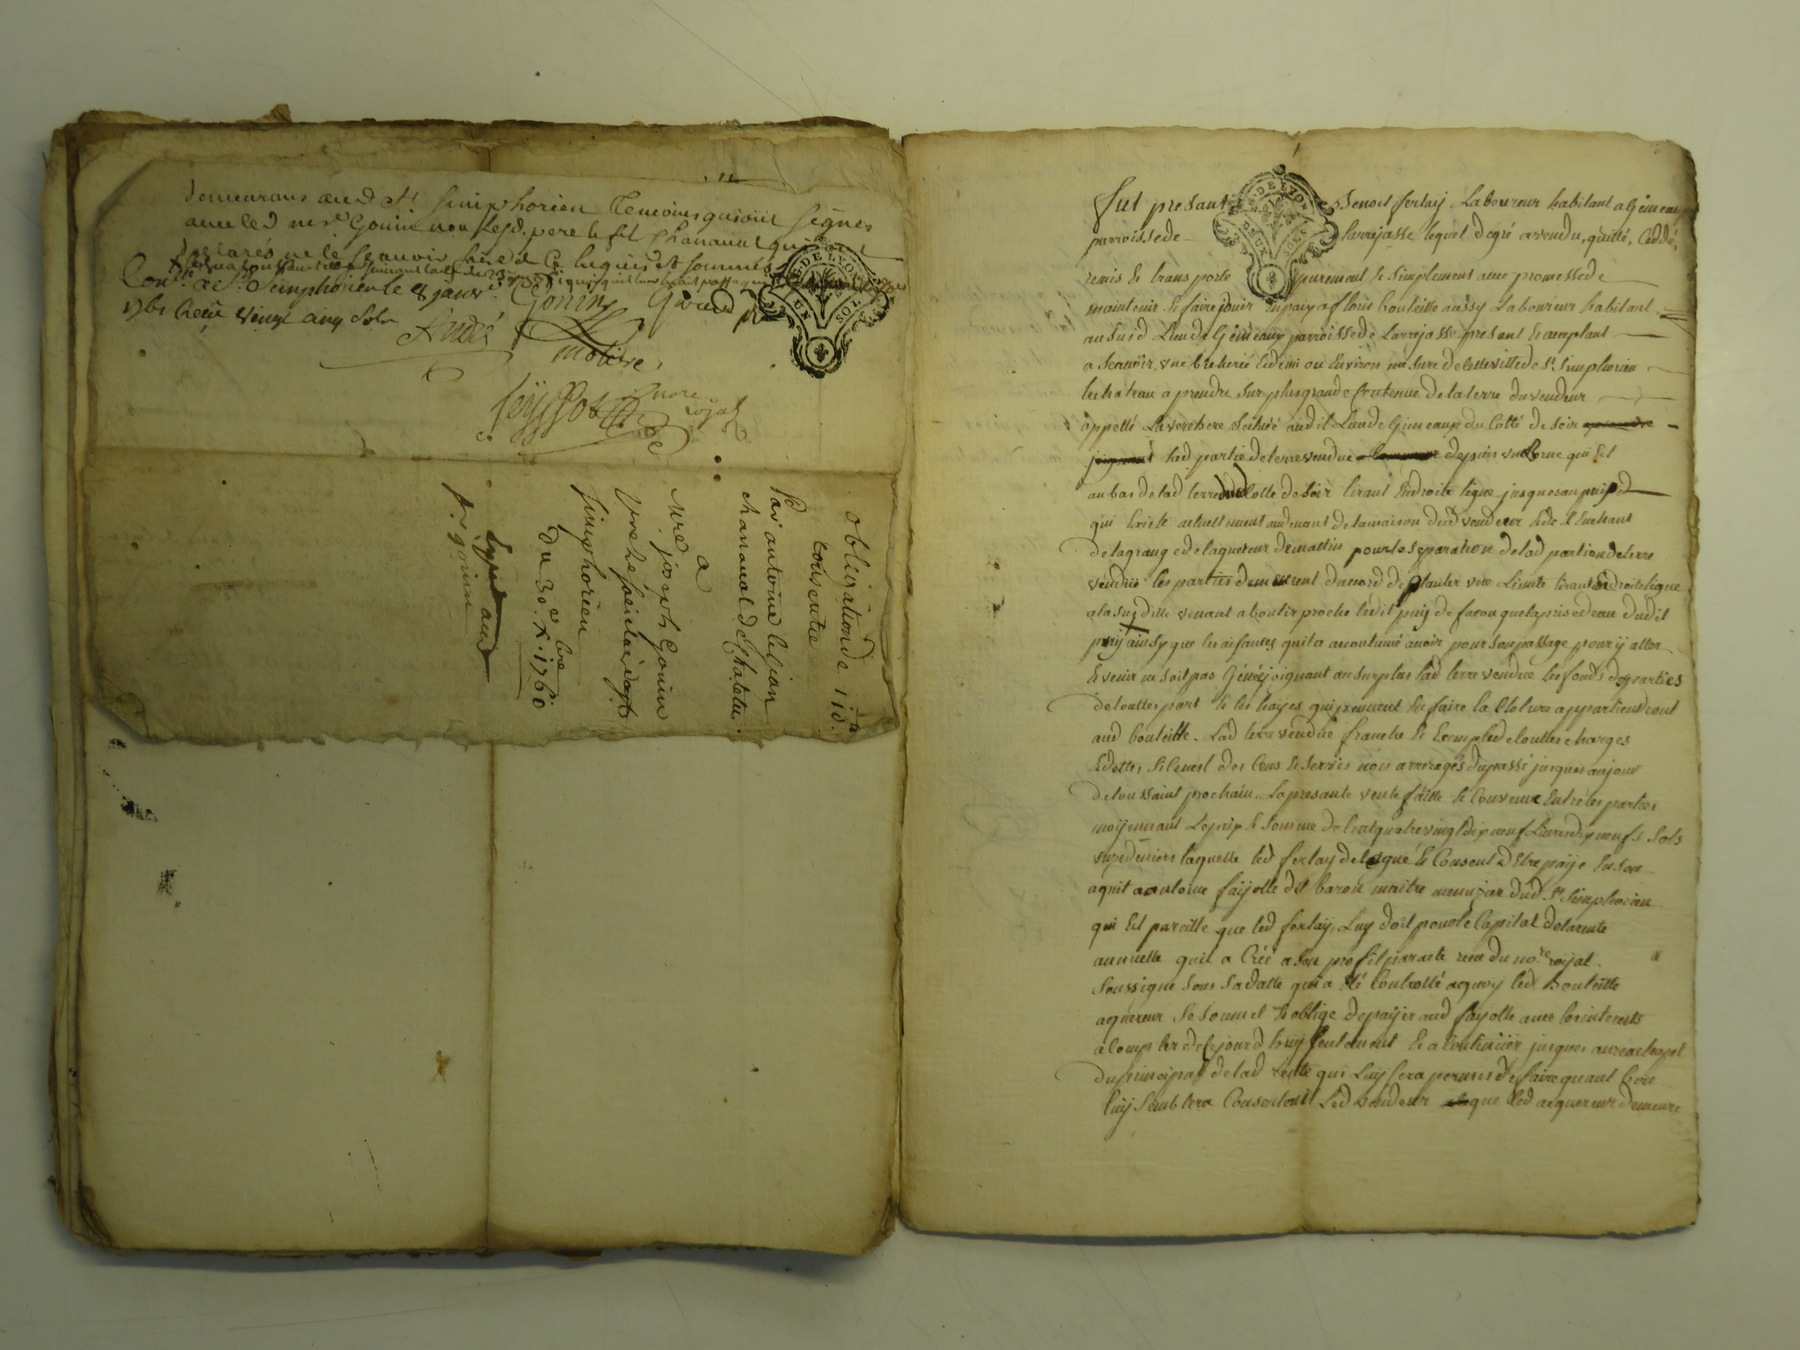 demeurans aud St Simphorien temoins qui ont signés
avec led mre Gonin non led. pere et fil Chanavat qui ont
declarés ne le sçavoir faire de ce enquis et sommés
Conlé a St Simphorien le 8 janvr
1761 Receu vingt cinq sols
Gonin Giraud
André
moliere
Leyssot nore royal
GEN. DE LYON
UN SOL
obligation de 110 lt
consentie
Par antoine et jean
chanavat de Chatelus
a
Mre joseph Gonin
simphorien
du 30e Xbre 1760
Expé aud
sr gonin
GEN. DE LYON
DEUX SOLS
Fut present Benoit ferlay, Laboureur habitant a Gimeaux
parroisse de Larrajasse lequel de gré a vendu, quitté, Ceddé,
remis et transporté purement et simplement avec promesse de
maintenir et faire jouir en paix a flori bouteille aussy Laboureur habitant
au susd Lieu de Gimeaux parroisse de Larrajasse present et acceptant
a Scavoir, une bicherée et demi ou Environ mesure de cette ville de St Simphorien
le chateau a prendre sur plus grande Contenue de la terre du vendeur
appellé La verchere, Scituée aud Lieu de Gimeaux du Cotté de soir
lad partie de terre vendue depuis une borne qui Est
au bas de lad terre du Cotté de soir tirant En droite ligne jusques au puip
qui Existe actuellement au devant de la maison dud vendeur
de la grange de laquereur de mattin pour la separation de lad partion de terre
vendue les parties demeurent daccord de planter une Limite tirant En droite ligne
a la susditte venant aboutir proche ledit puis de facon que la prise deau dudit
puij ainsy que les aisances quil a accoutumé avoir pour son passage pour ÿ aller
Et venir ne soit pas Géné joignant au surplus lad terre vendue les fonds des parties
de touttes part Et les hayes qui prennent Et faire la Cloture appartiendront
aud bouteille. Lad terre vendue franche Et Exempte de touttes charges
Et dettes, si ce nest des Cens Et servis non arreragés du passé jusques au jour
de toussaint prochain. La presente vente faitte Et Convenue Entre les parties
moÿennant Le prix Et somme de Cent quatre vingt dix neuf Livres dix neuf sols
onze deniers laquelle led ferlay delegue Et Consent dEtre paÿé En son
aquit a antoine faÿolle dit baron maitre dud St Simphorien
qui Est pareille que led ferlay, Luy doit pour le Capital de la rente
annuelle quil a Créé a son profit par acte receu du nore royal
soussigné sous sa datte qui a Eté Controllé a quoy led Bouteille
aquereur se soumet Et oblige de paÿer aud faÿolle avec les interests
a Compter de Ce jour d huy seulement Et a Continuer jusques au rachapt
du principal de lad rente qui Luy sera permis de faire quant bon
luy semblera Consentant Led vendeur que led aquereur demeure